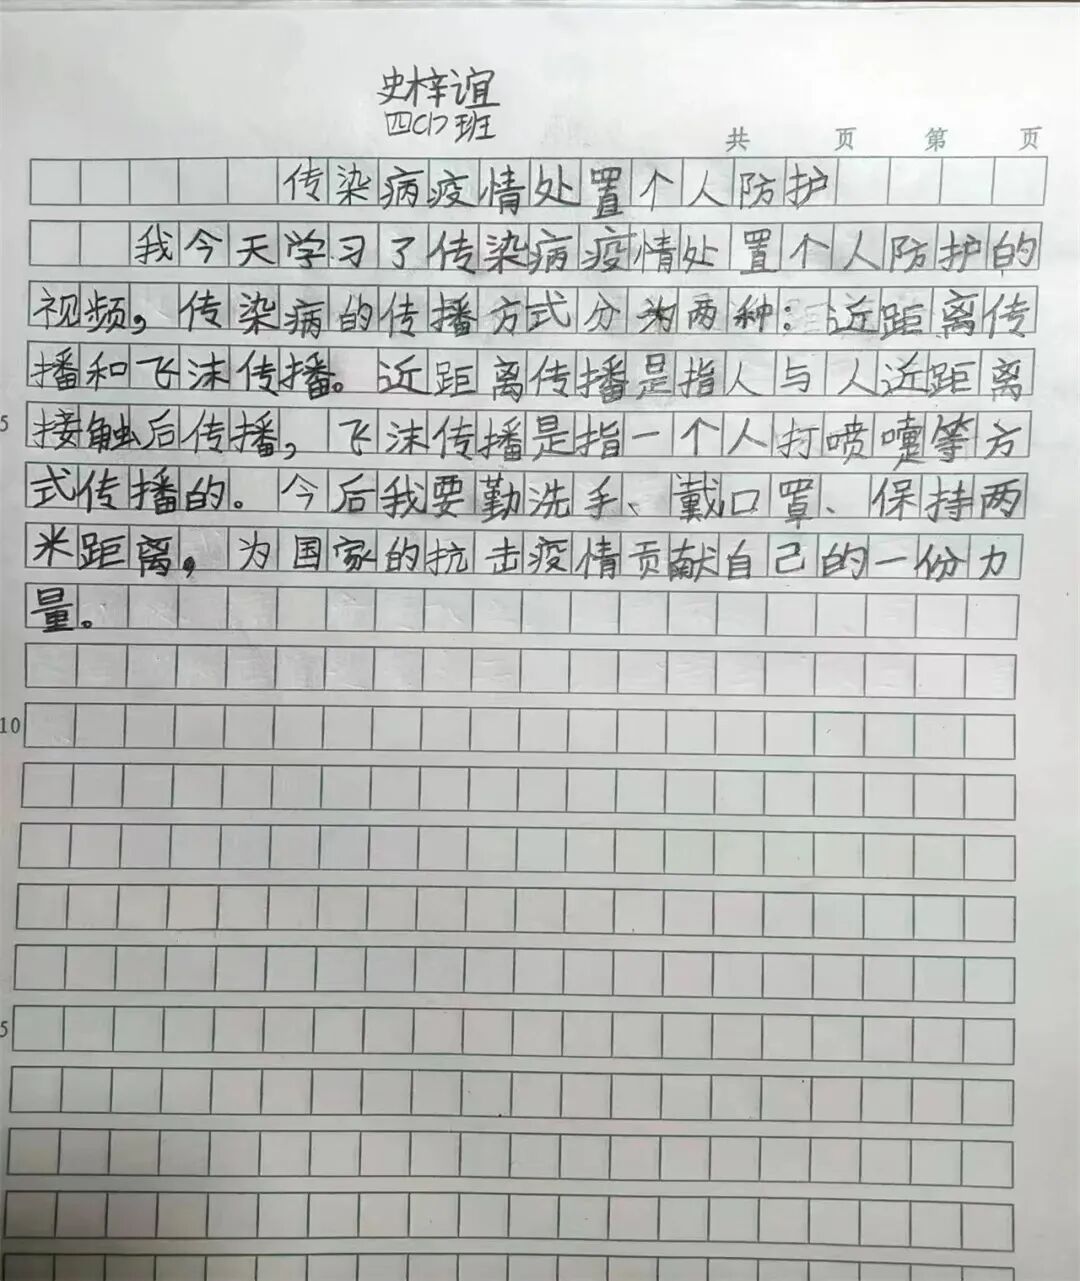 史梓谊
四(1)班
共 页 第 页
传染病疫情处置个人防护
我今天学习了传染病疫情处置个人防护的
视频，传染病的传播方式分为两种：近距离传
播和飞沫传播。近距离传播是指人与人近距离
5 接触后传播，飞沫传播是指一个人打喷嚏等方
式传播的。今后我要勤洗手、戴口罩、保持两
米距离，为国家的抗击疫情贡献自己的一份力
量。
10
5